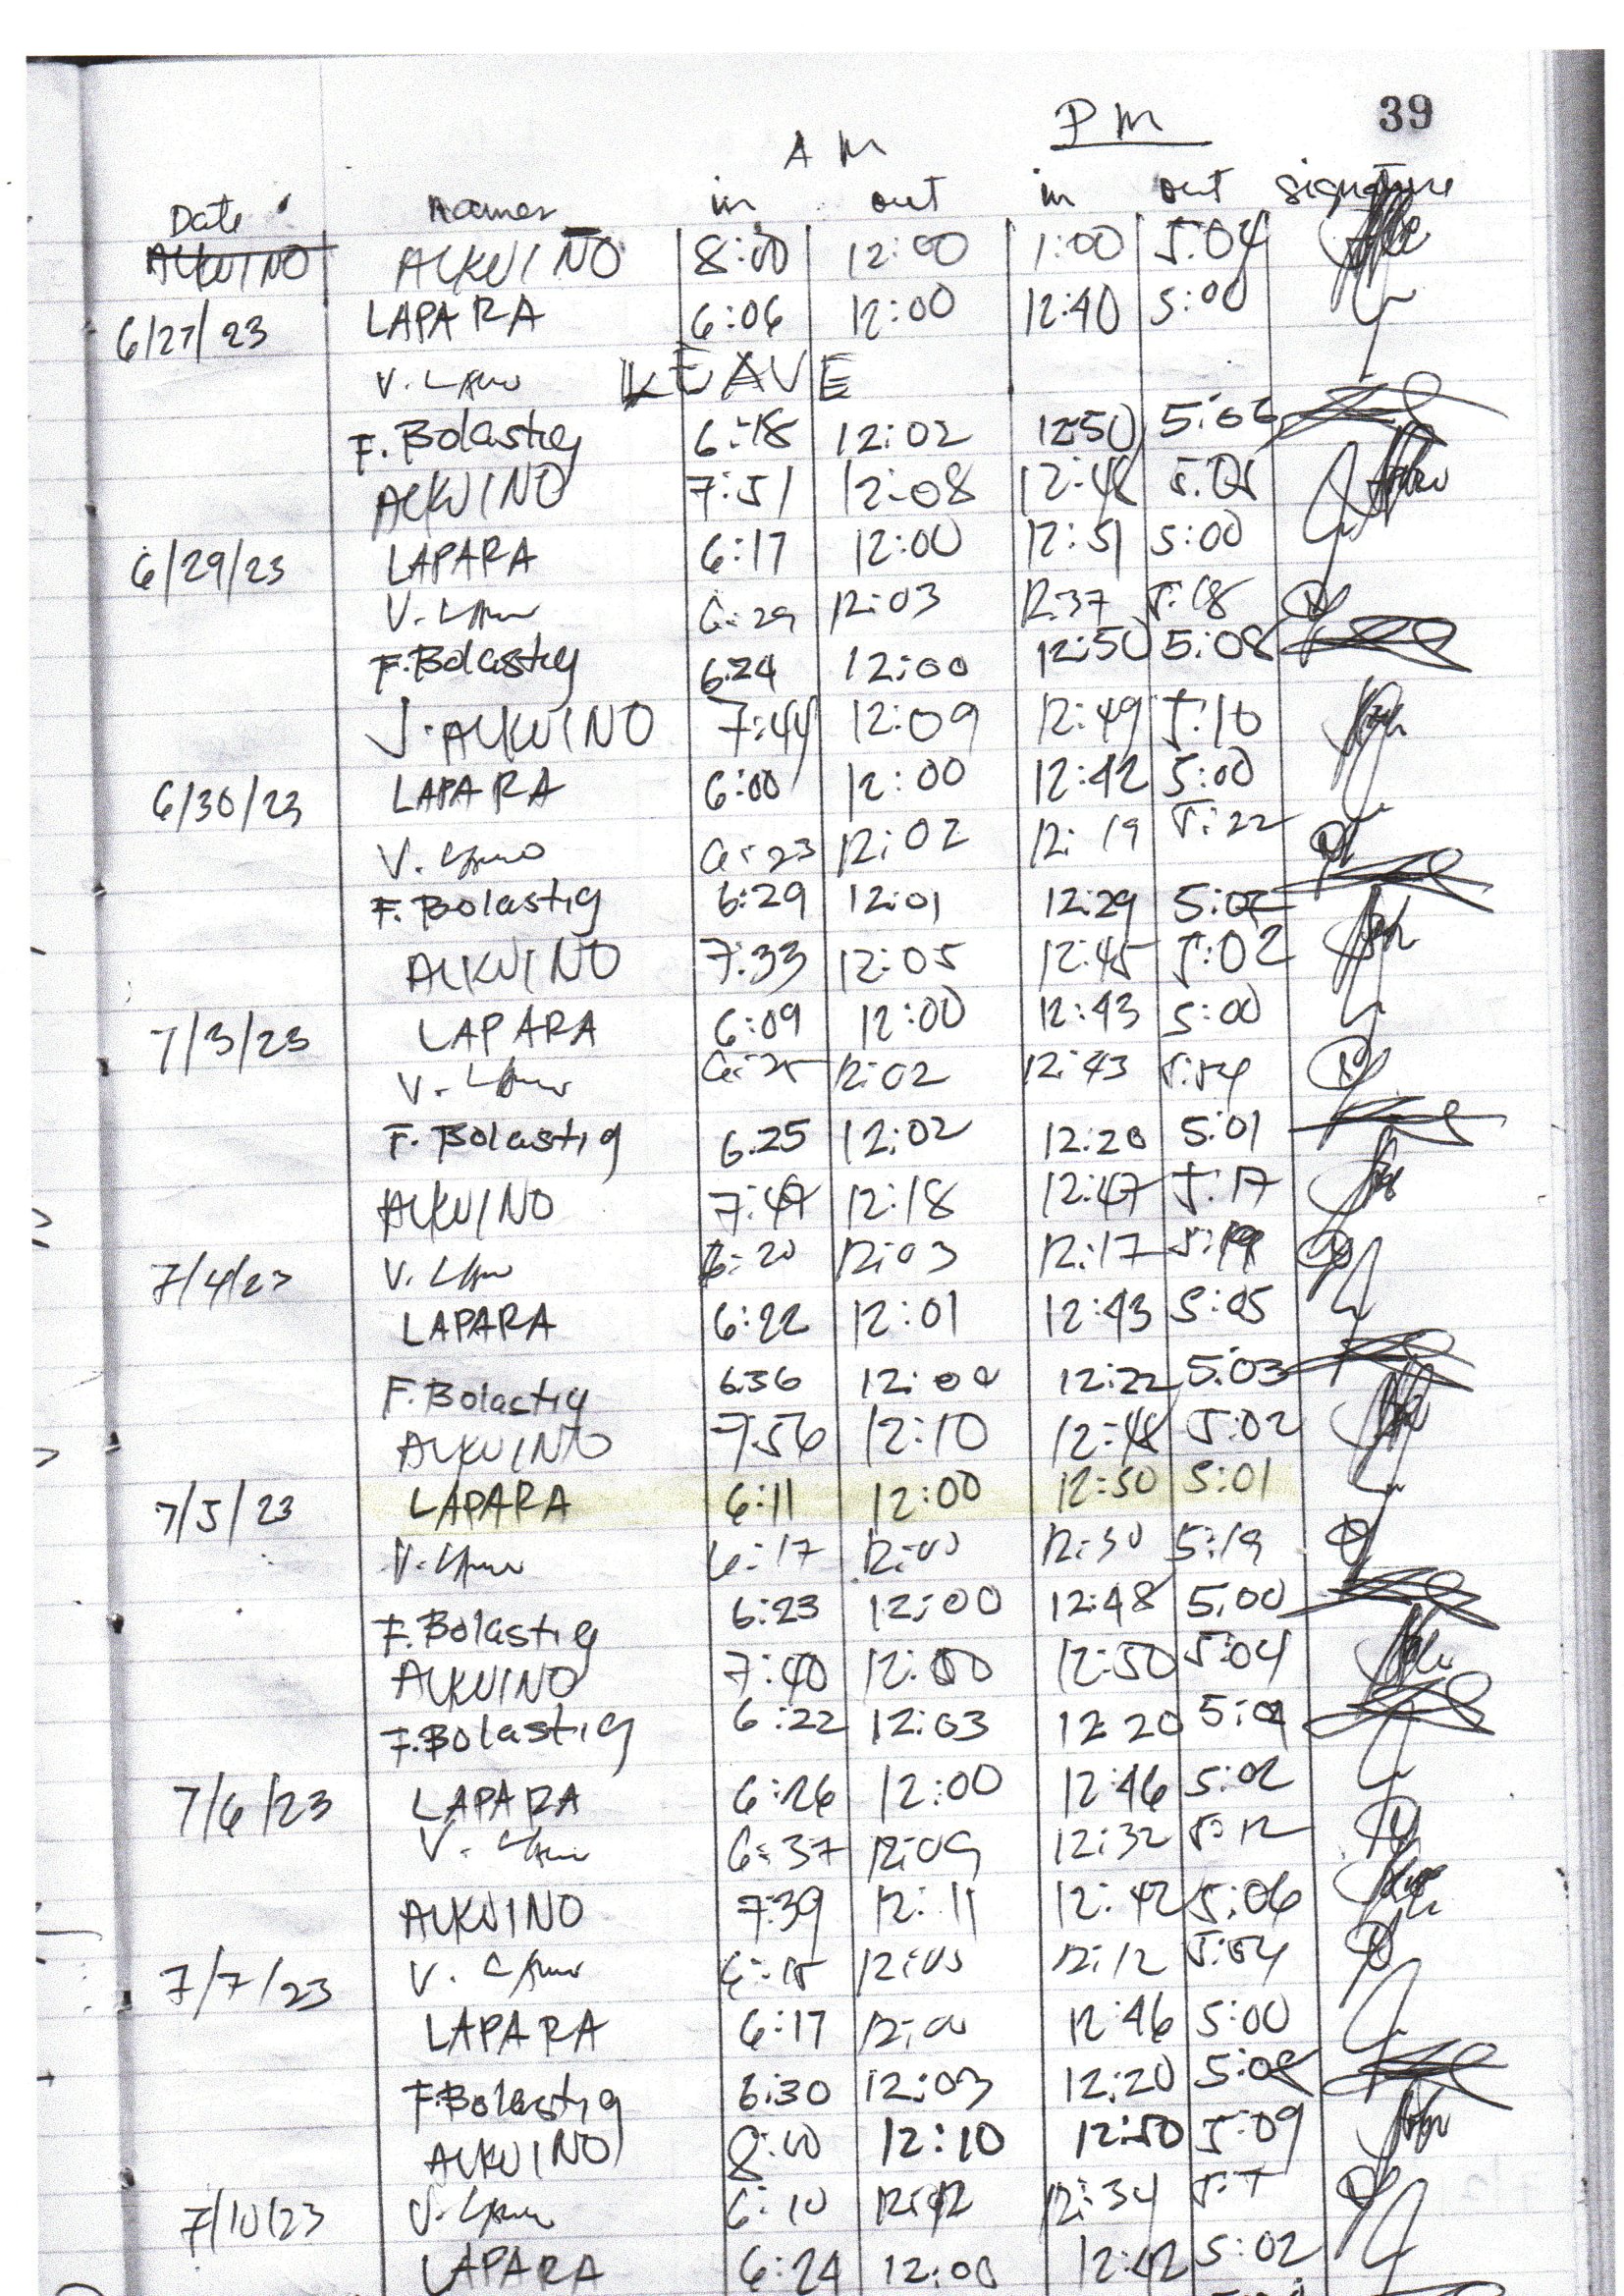 39
AM PM
Date names in out in out signature
ALKUINO ALKUINO 8:00 12:00 1:00 5:04
6/27/23 LAPARA 6:06 12:00 12:40 5:00
V. LEAVE
F. Bolastig 6:18 12:02 12:50
ALKUINO 7:51 12:08 12:48 5:05
6/29/23 LAPARA 6:17 12:00 12:51 5:00
V. 6:29 12:03 12:37 5:18
F. Bolastig 6:24 12:00 12:50 5:08
J. ALKUINO 7:44 12:09 12:49 5:10
6/30/23 LAPARA 6:00 12:00 12:42 5:00
V. 6:23 12:02 12:19 5:22
F. Bolastig 6:29 12:01 12:29 5:02
ALKUINO 7:33 12:05 12:45 5:02
7/3/23 LAPARA 6:09 12:00 12:43 5:00
V. 6:25 12:02 12:43 5:04
F. Bolastig 6.25 12:02 12:20 5:01
ALKUINO 12:18 12:47 5:17
7/4/23 V. 6:20 12:03 12:17 5:19
LAPARA 6:22 12:01 12:43 5:05
F. Bolastig 6:36 12:00 12:22 5:03
ALKUINO 7:56 12:10 12:48 5:02
7/5/23 LAPARA 6:11 12:00 12:50 5:01
V. 6:17 12:00 12:30 5:19
F. Bolastig 6:23 12:00 12:48 5:00
ALKUINO 7:40 12:00 12:50 5:04
F. Bolastig 6:22 12:03 12:20
7/6/23 LAPARA 6:26 12:00 12:46 5:02
V. 6:37 12:09 12:32 5:12
ALKUINO 7:39 12:11 12:42 5:06
7/7/23 V. 6:15 12:00 12:12 5:04
LAPARA 6:17 12:00 12:46 5:00
F. Bolastig 6:30 12:03 12:20
ALKUINO 8:00 12:10 12:50 5:09
7/10/23 V. 6:10 12:12 12:34
LAPARA 6:24 12:00 12:42 5:02